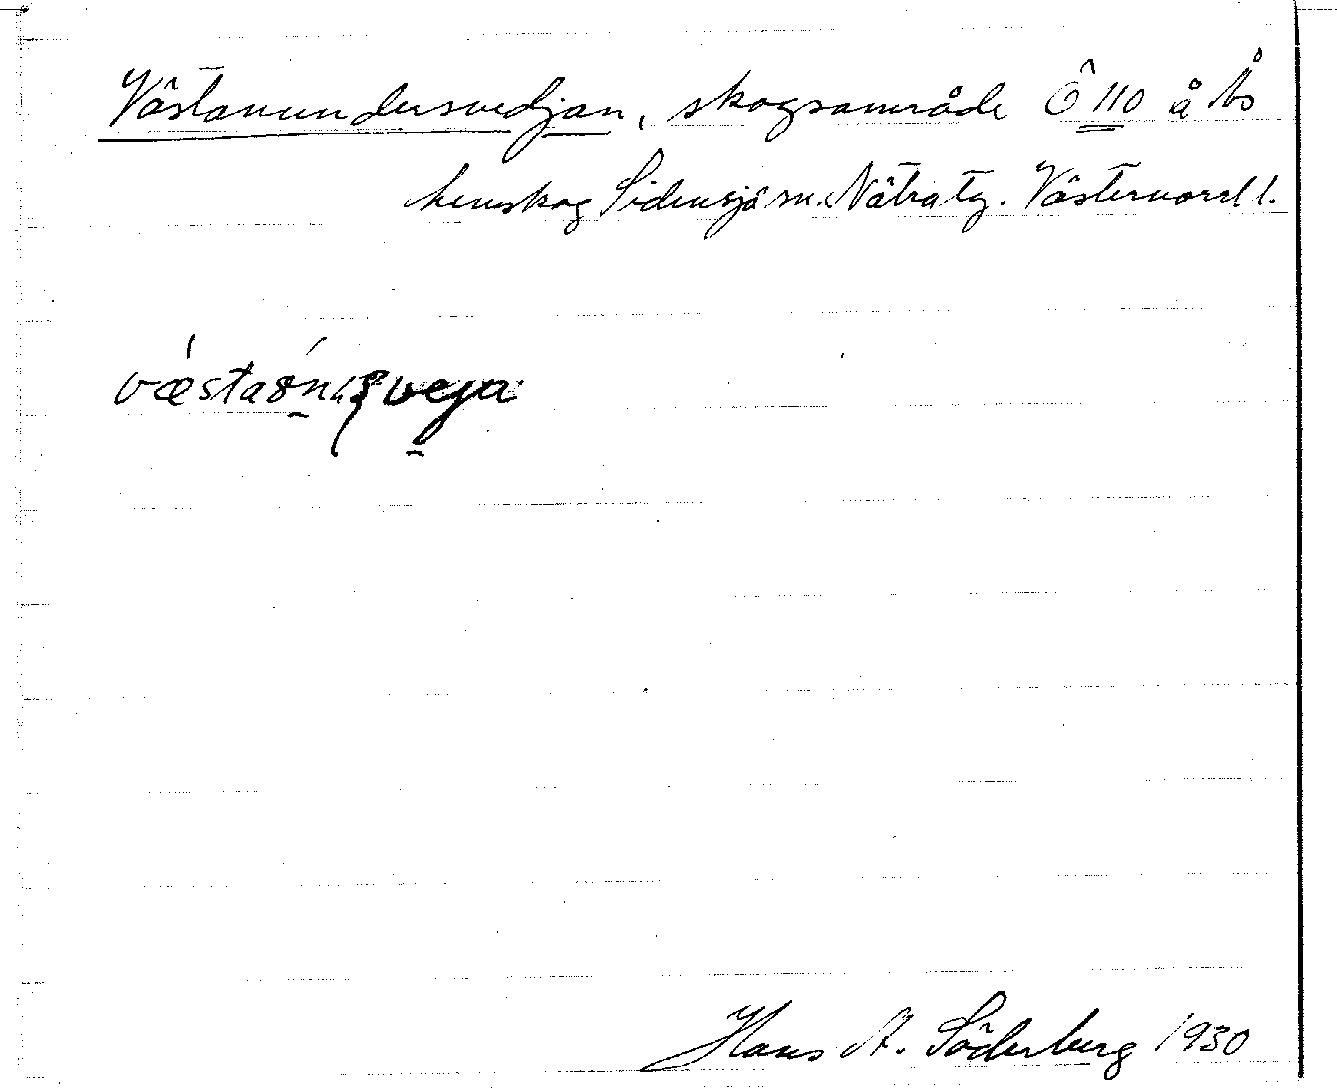 Västanundersvedjan, skogsområde Ö 110 å Ås
hemskog Sidensjö sn. Nätra tg. Västernorrl l.
Hans A. Söderberg 1930